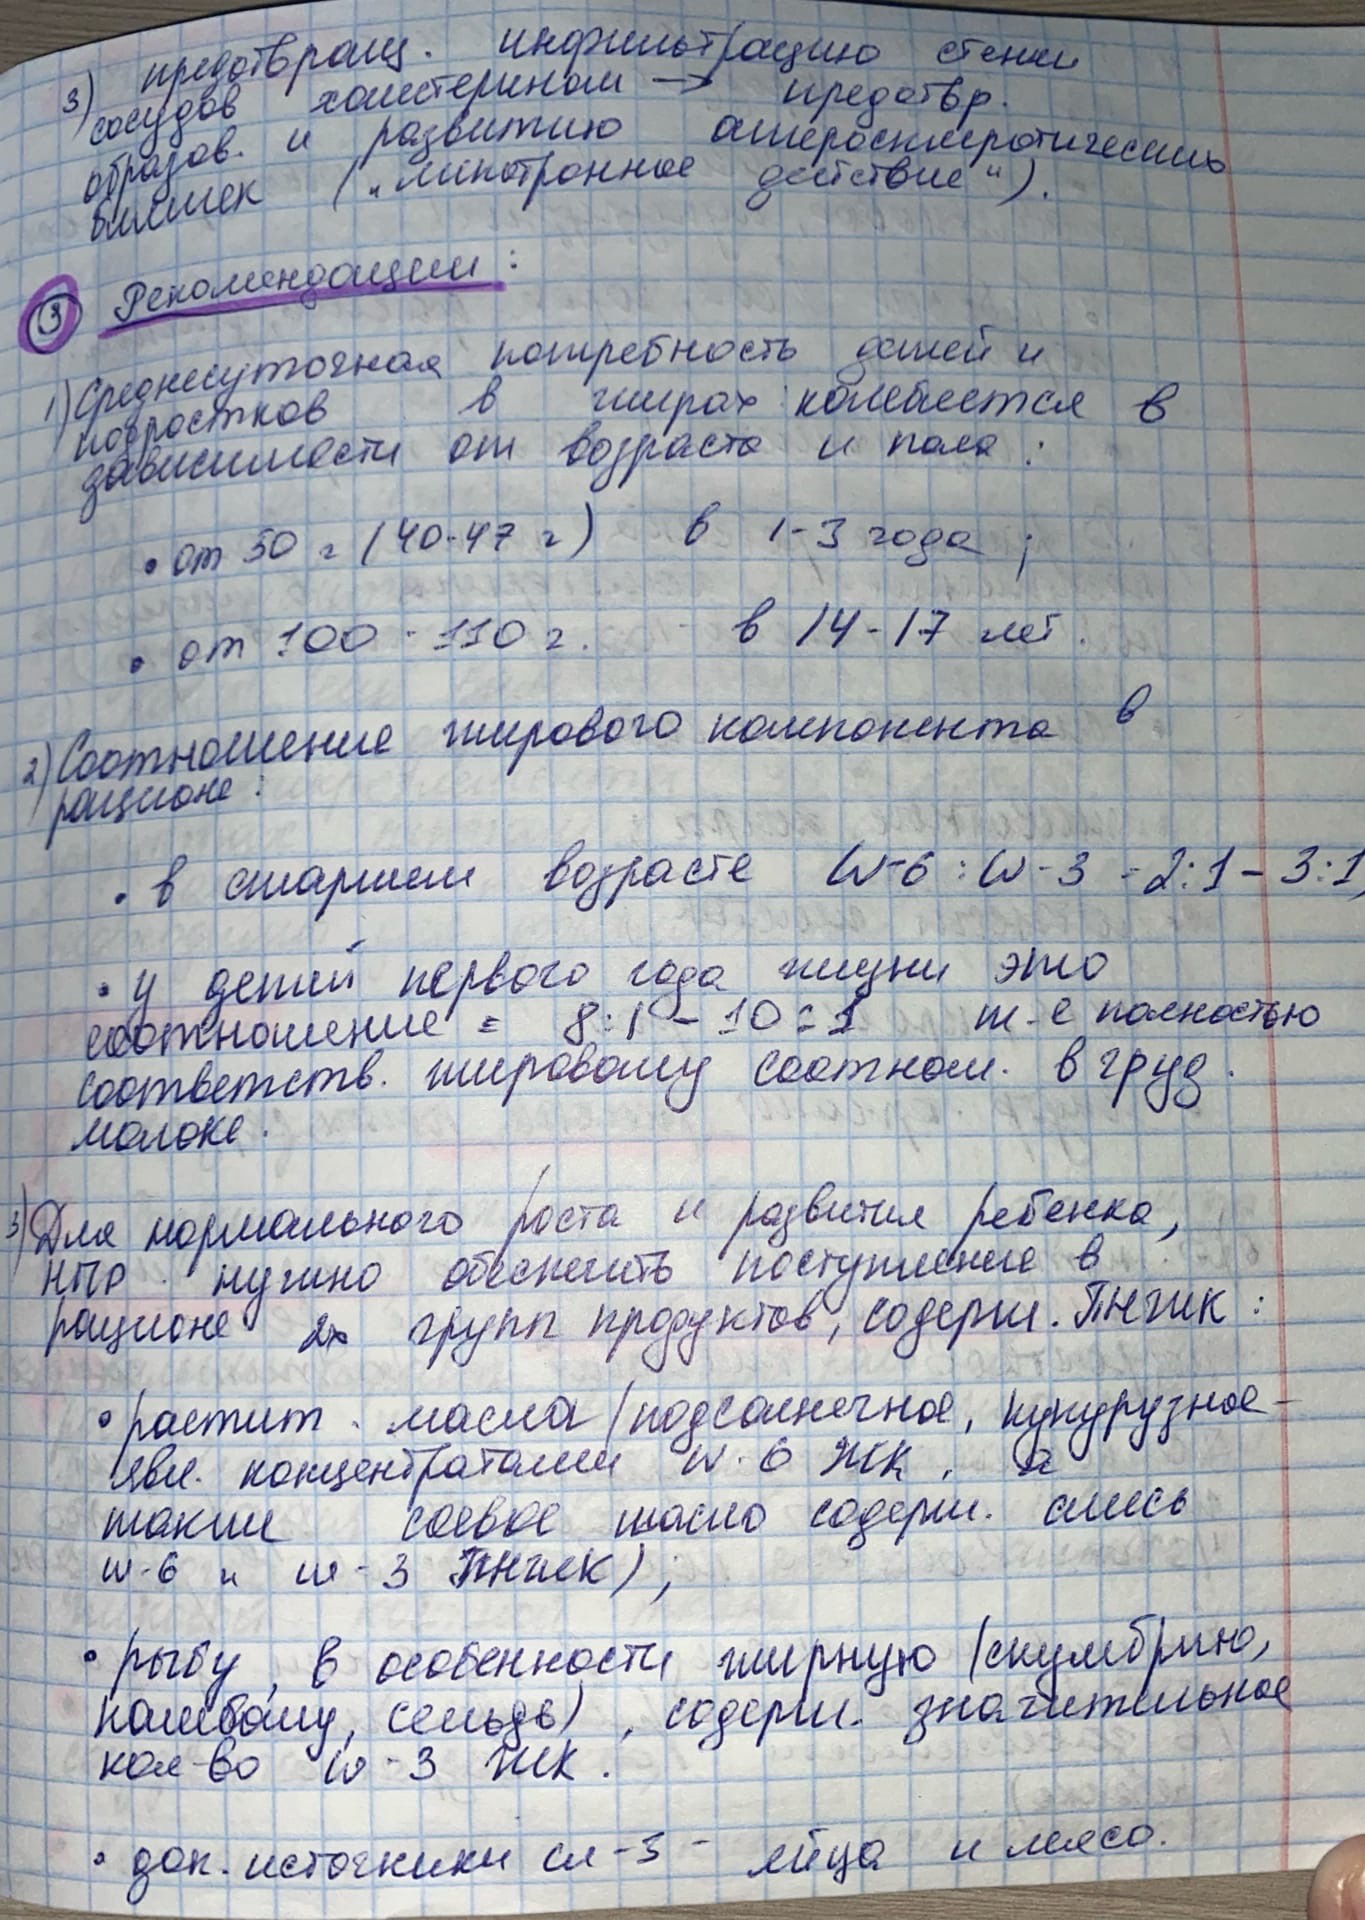 3) предотвращ. инфильтрацию стенки
сосудов холестерином → предотвр.
образов. и развитию атеросклеротических
бляшек („липотропное действие").
③ Рекомендации:
1) Среднесуточная потребность детей и
подростков в жирах колеблется в
зависимости от возраста и пола:
• от 50 г (40-47 г) в 1-3 года;
• от 100 - 110 г. - в 14-17 лет.
2) Соотношение жирового компонента в
рационе:
• в старшем возрасте ω-6 : ω-3 = 2:1 - 3:1,
• у детей первого года жизни это
соотношение = 8:1 - 10:1 т-е полностью
соответств. жировому соотнош. в груд.
молоке.
3) Для нормального роста и развития ребенка,
НПР. нужно обеспечить поступление в
рационе 2х групп продуктов, содерж. ПНЖК:
• растит. масла (подсолнечное, кукурузное -
явл. концентратами ω-6 ЖК, а
также соевое масло содерж. смесь
ω-6 и ω-3 ПНЖК);
• рыбу, в особенности жирную (скумбрию,
камбалу, сельдь), содерж. значительное
кол-во ω-3 ЖК.
• доп. источники ω-3 - яйца и мясо.